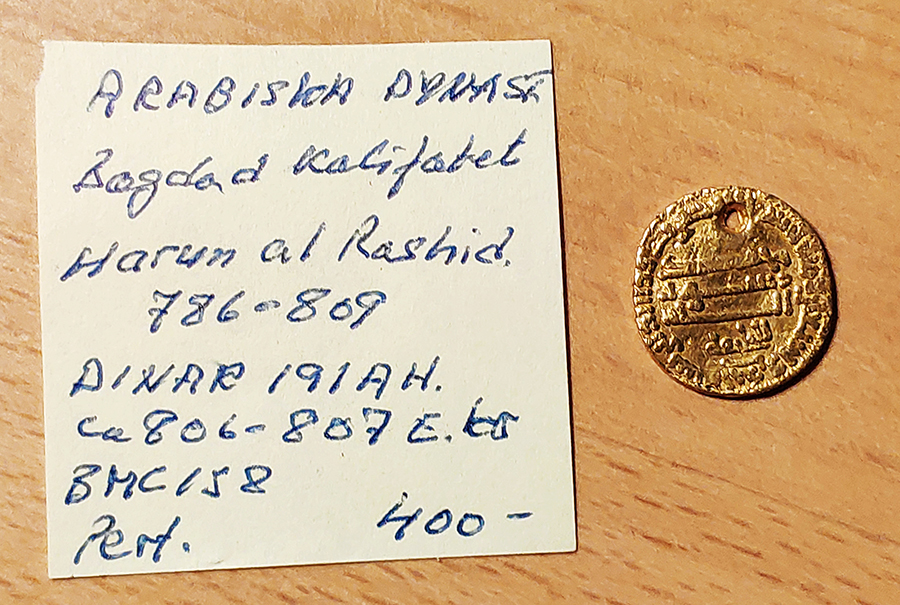 ARABISKA DYNAST
Bagdad Kalifatet
Harun al Rashid.
786-809
DINAR 191 AH.
ca 806-807 E. kr
BMC 158
Pert. 400-